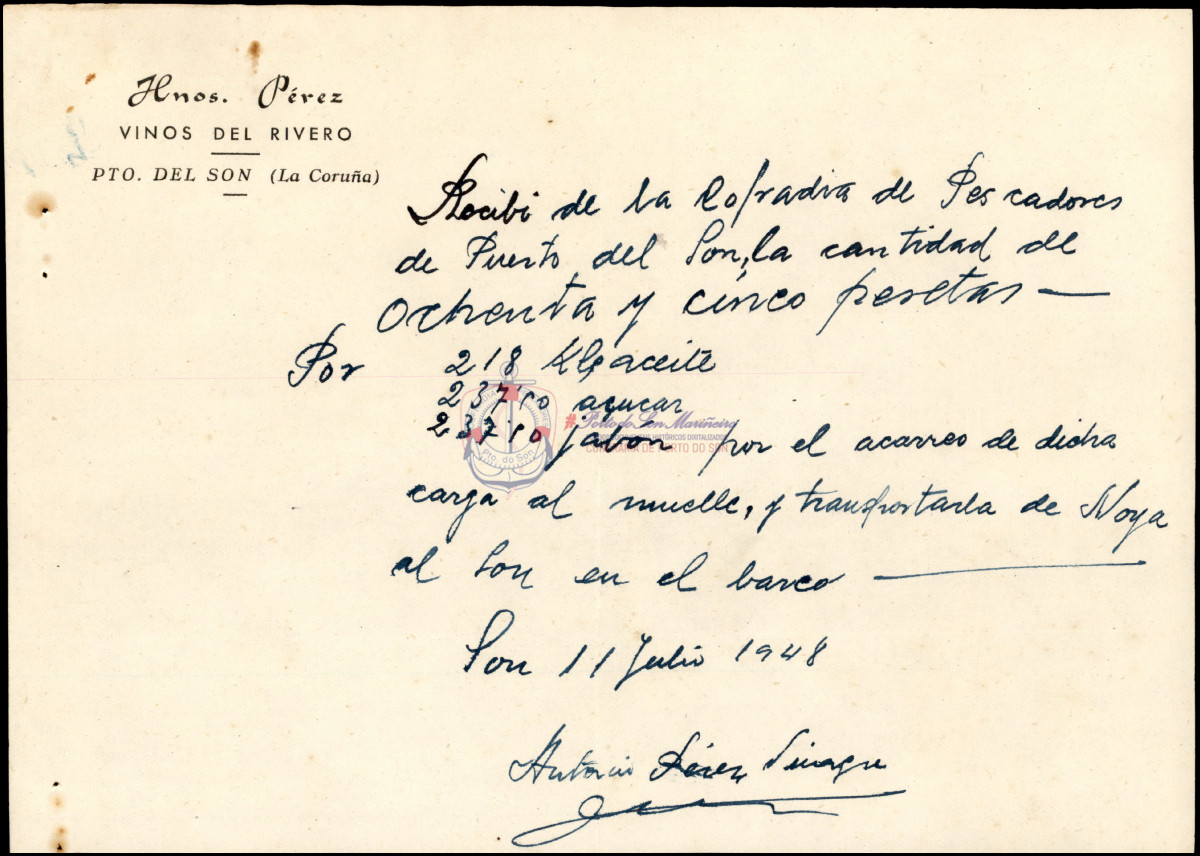 Hnos. Pérez
VINOS DEL RIVERO
PTO. DEL SON (La Coruña)
Recibi de la Cofradia de Pescadores
de Puerto del Son, la cantidad de
Ochenta y cinco pesetas —
Por 218 Kls aceite
237'50 açucar
237'50 jabon por el acarreo de dicha
carga al muelle, y transportarla de Noya
al Son en el barco —
Son 11 Julio 1948
Antonio Pérez Vinagre
#Porto do Son Mariñeiro
HISTÓRICOS DIGITALIZADOS
CONFRARÍA DE PORTO DO SON
Pto. do Son